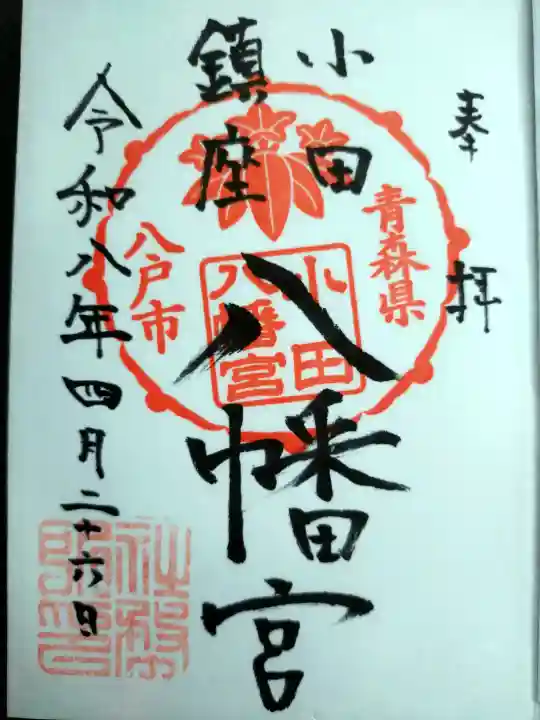 奉拝
小田
鎮座
八幡宮
令和八年四月二十六日
青森県
八戸市
小田
八幡宮